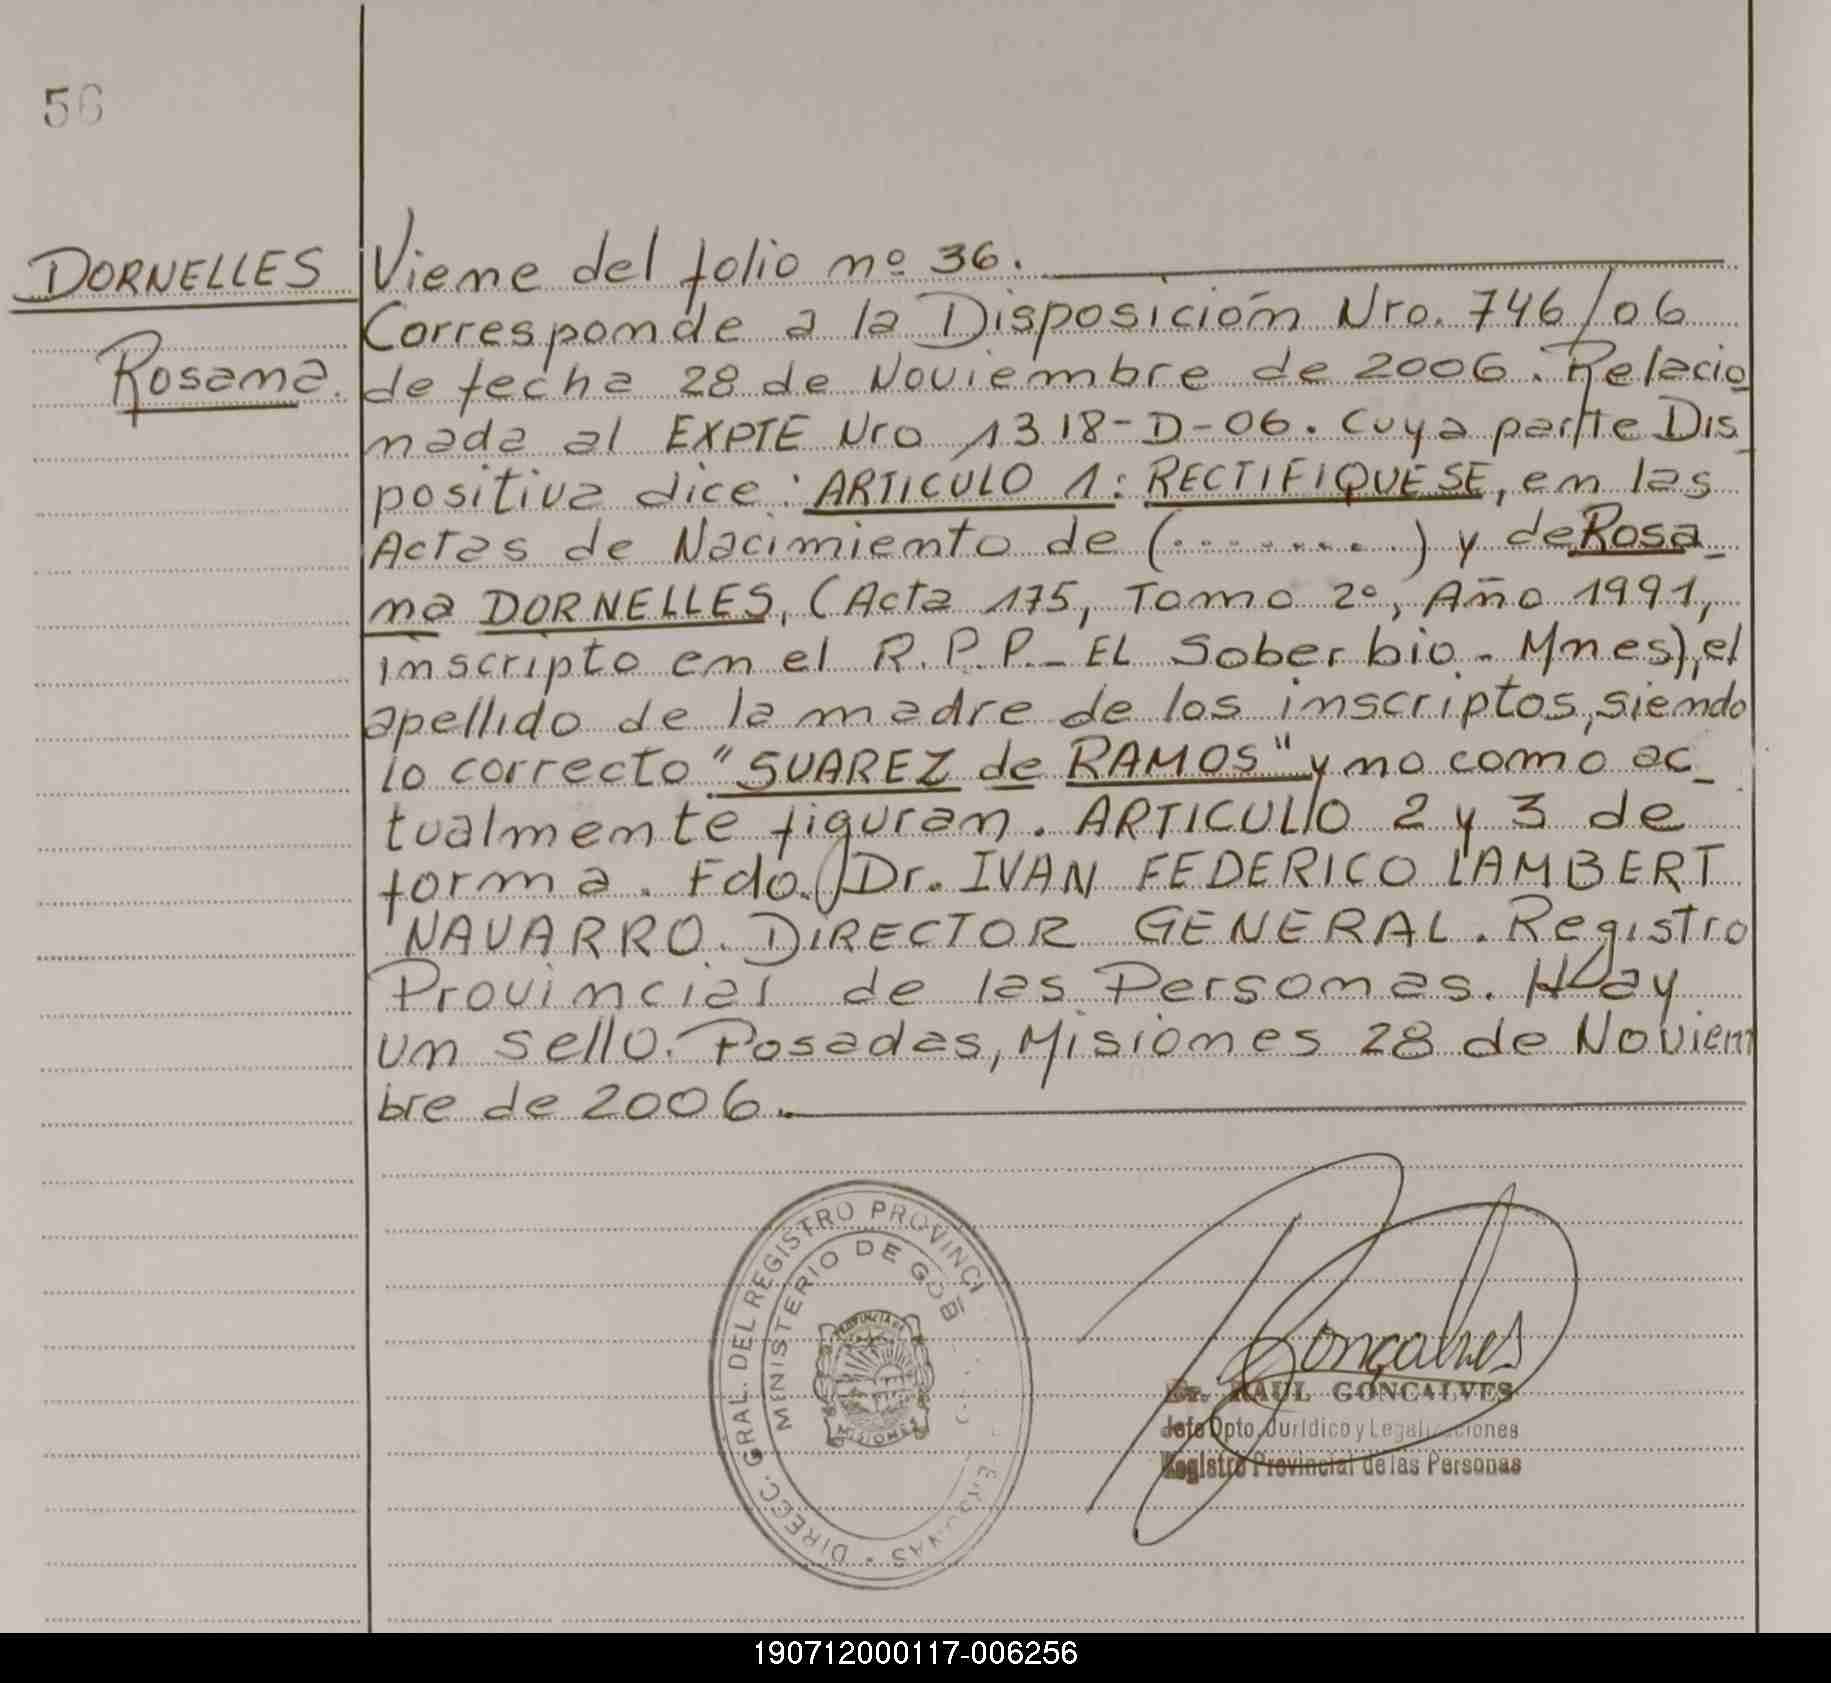 56
DORNELLES
Rosana.
Viene del folio nº 36.
Corresponde a la Disposición Nro. 746/06
de fecha 28 de Noviembre de 2006. Relacio
nada al EXPTE Nro 1318-D-06. Cuya parte Dis_
positiva dice: ARTICULO 1: RECTIFIQUESE, en las
Actas de Nacimiento de (.........) y de Rosa_
na DORNELLES, (Acta 175, Tomo 2º, Año 1991,
inscripto en el R.P.P_ EL Soberbio - Mnes), el
apellido de la madre de los inscriptos, siendo
lo correcto "SUAREZ de RAMOS" y no como ac_
tualmente figuran. ARTICULO 2 y 3 de
forma. Fdo. Dr. IVAN FEDERICO LAMBERT
NAVARRO. DIRECTOR GENERAL. Registro
Provincial de las Personas. Hay
un sello. Posadas, Misiones 28 de Noviem
bre de 2006.
DIRECC. GRAL. DEL REGISTRO PROVINCI
MINISTERIO DE GOBI
PROVINCIA DE
MISIONES
Gonçalves
Dr. RAUL GONCALVES
Jefe Dpto. Jurídico y Legalizaciones
Registro Provincial de las Personas
190712000117-006256